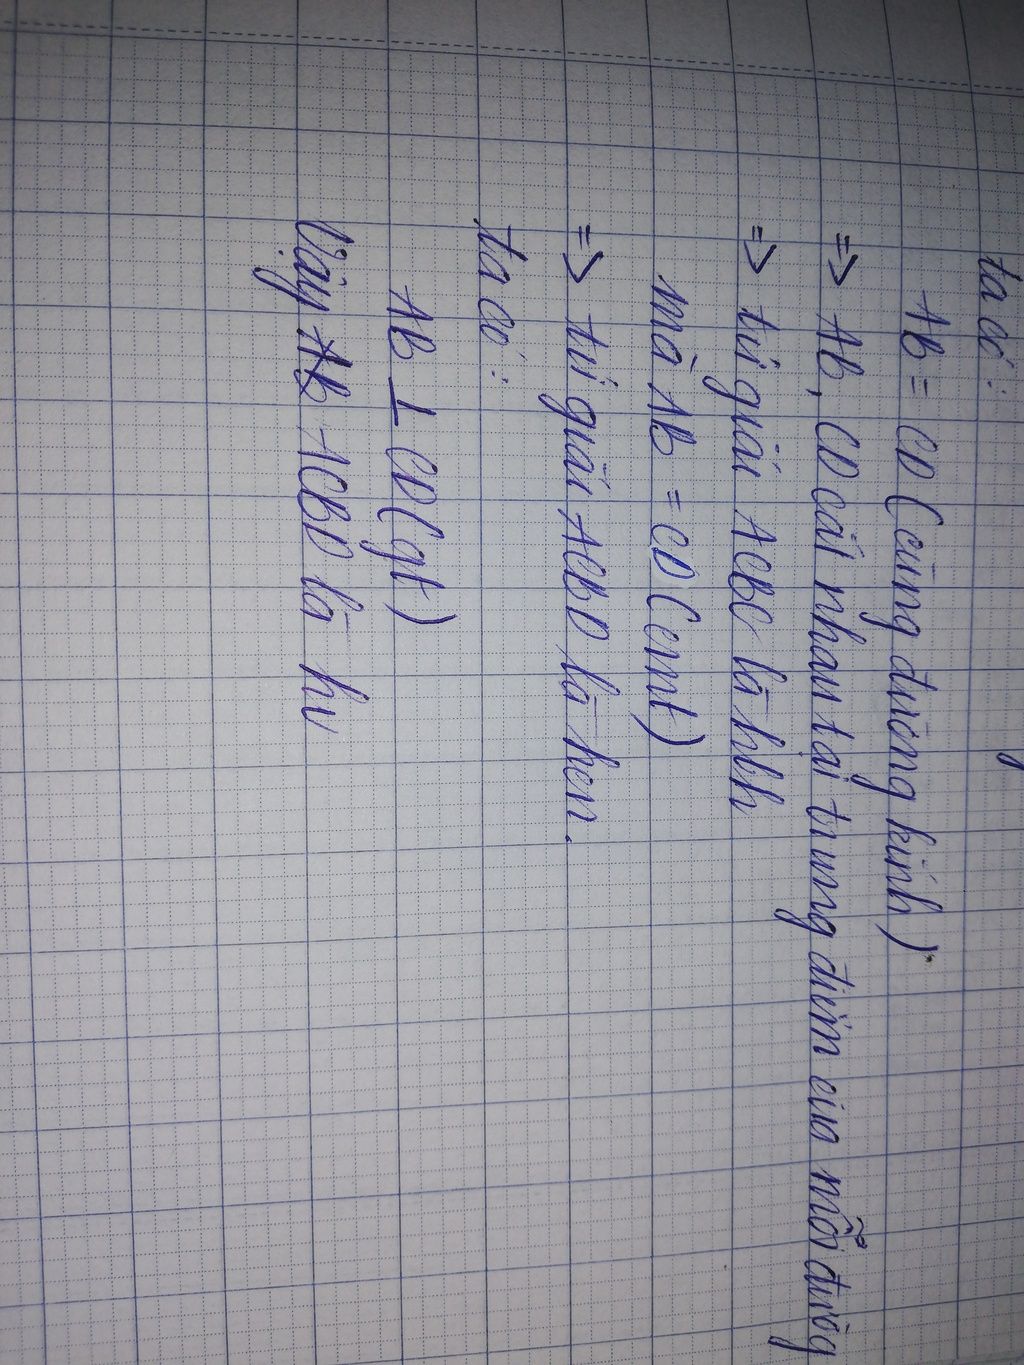 ta có:
AB = CD (cùng đường kính).
=> AB, CD cắt nhau tại trung điểm của mỗi đường
=> tứ giác ACBC là hbh
mà AB = CD (cmt)
=> tứ giác ACBD là hcn.
ta có:
AB ⊥ CD (gt)
Vậy ACBD là hv